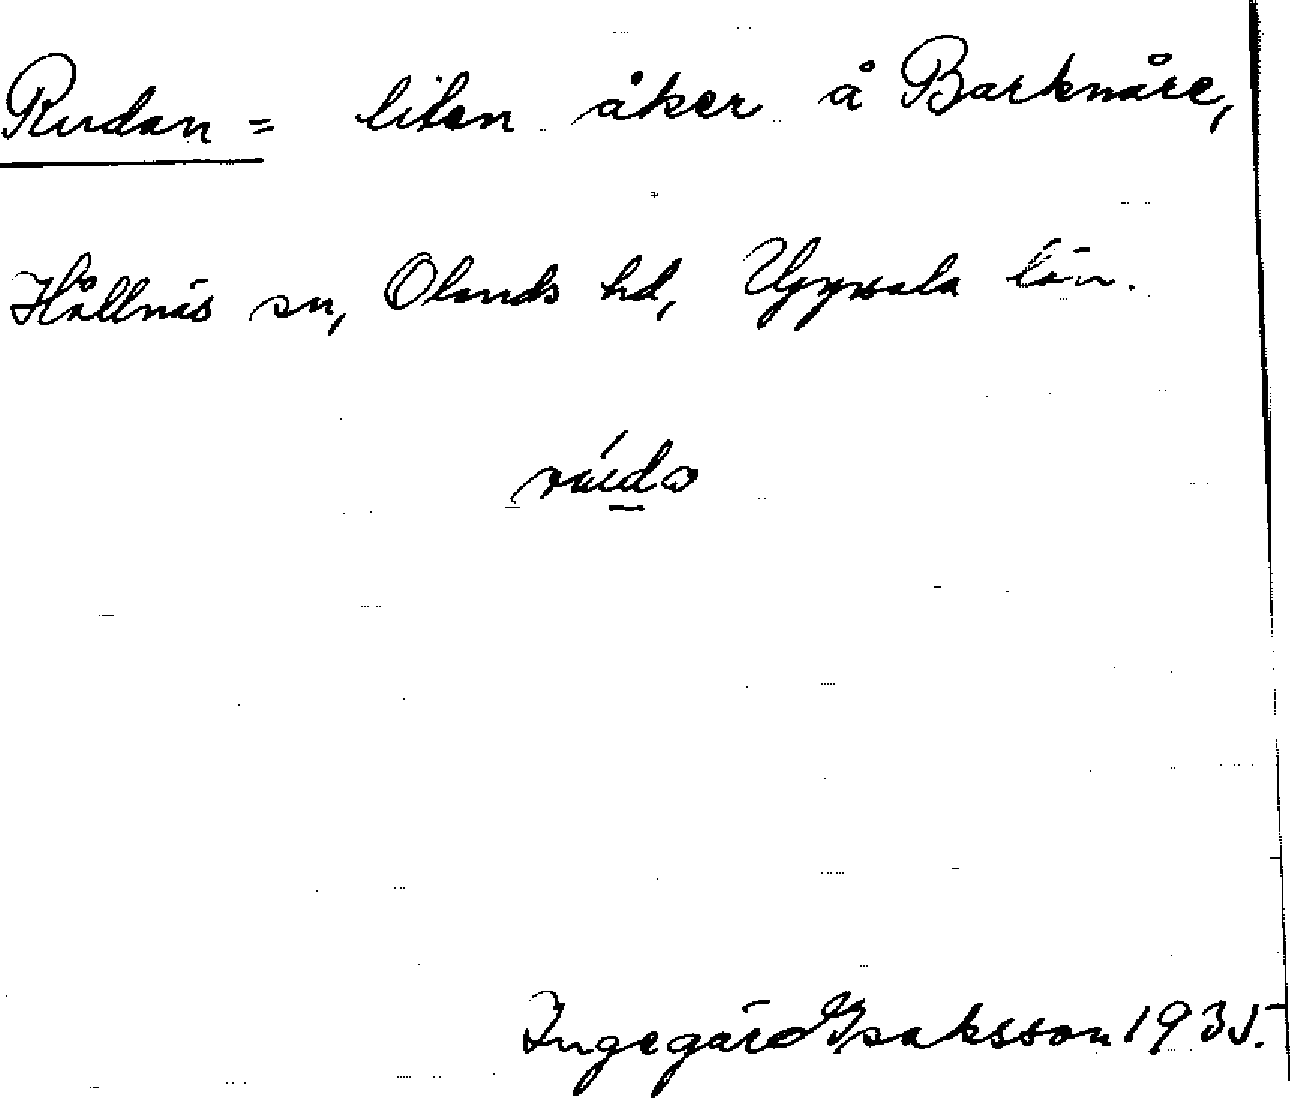 Rudan = liten åker å Barknåre,
Hållnäs sn, Olands hd, Uppsala län.
Ingegärd Isaksson 1935.